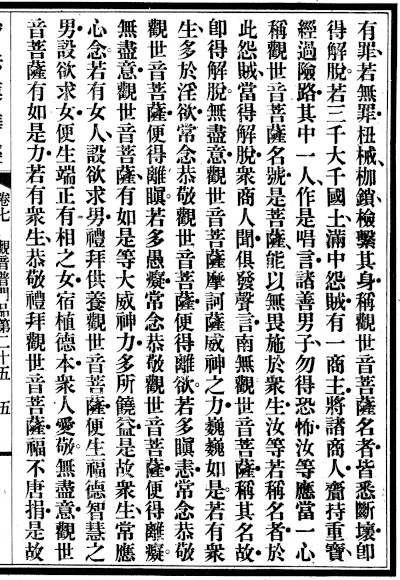 有罪若無罪杻械枷鎖檢繫其身稱觀世音菩薩名者皆悉斷壞卽
得解脫若三千大千國土滿中怨賊有一商主將諸商人齎持重寶
經過險路其中一人作是唱言諸善男子勿得恐怖汝等應當一心
稱觀世音菩薩名號是菩薩能以無畏施於衆生汝等若稱名者於
此怨賊當得解脫衆商人聞俱發聲言南無觀世音菩薩稱其名故
卽得解脫無盡意觀世音菩薩摩訶薩威神之力巍巍如是若有衆
生多於淫欲常念恭敬觀世音菩薩便得離欲若多瞋恚常念恭敬
觀世音菩薩便得離瞋若多愚癡常念恭敬觀世音菩薩便得離癡
無盡意觀世音菩薩有如是等大威神力多所饒益是故衆生常應
心念若有女人設欲求男禮拜供養觀世音菩薩便生福德智慧之
男設欲求女便生端正有相之女宿植德本衆人愛敬無盡意觀世
音菩薩有如是力若有衆生恭敬禮拜觀世音菩薩福不唐捐是故
卷七 觀音普品第二十五 五